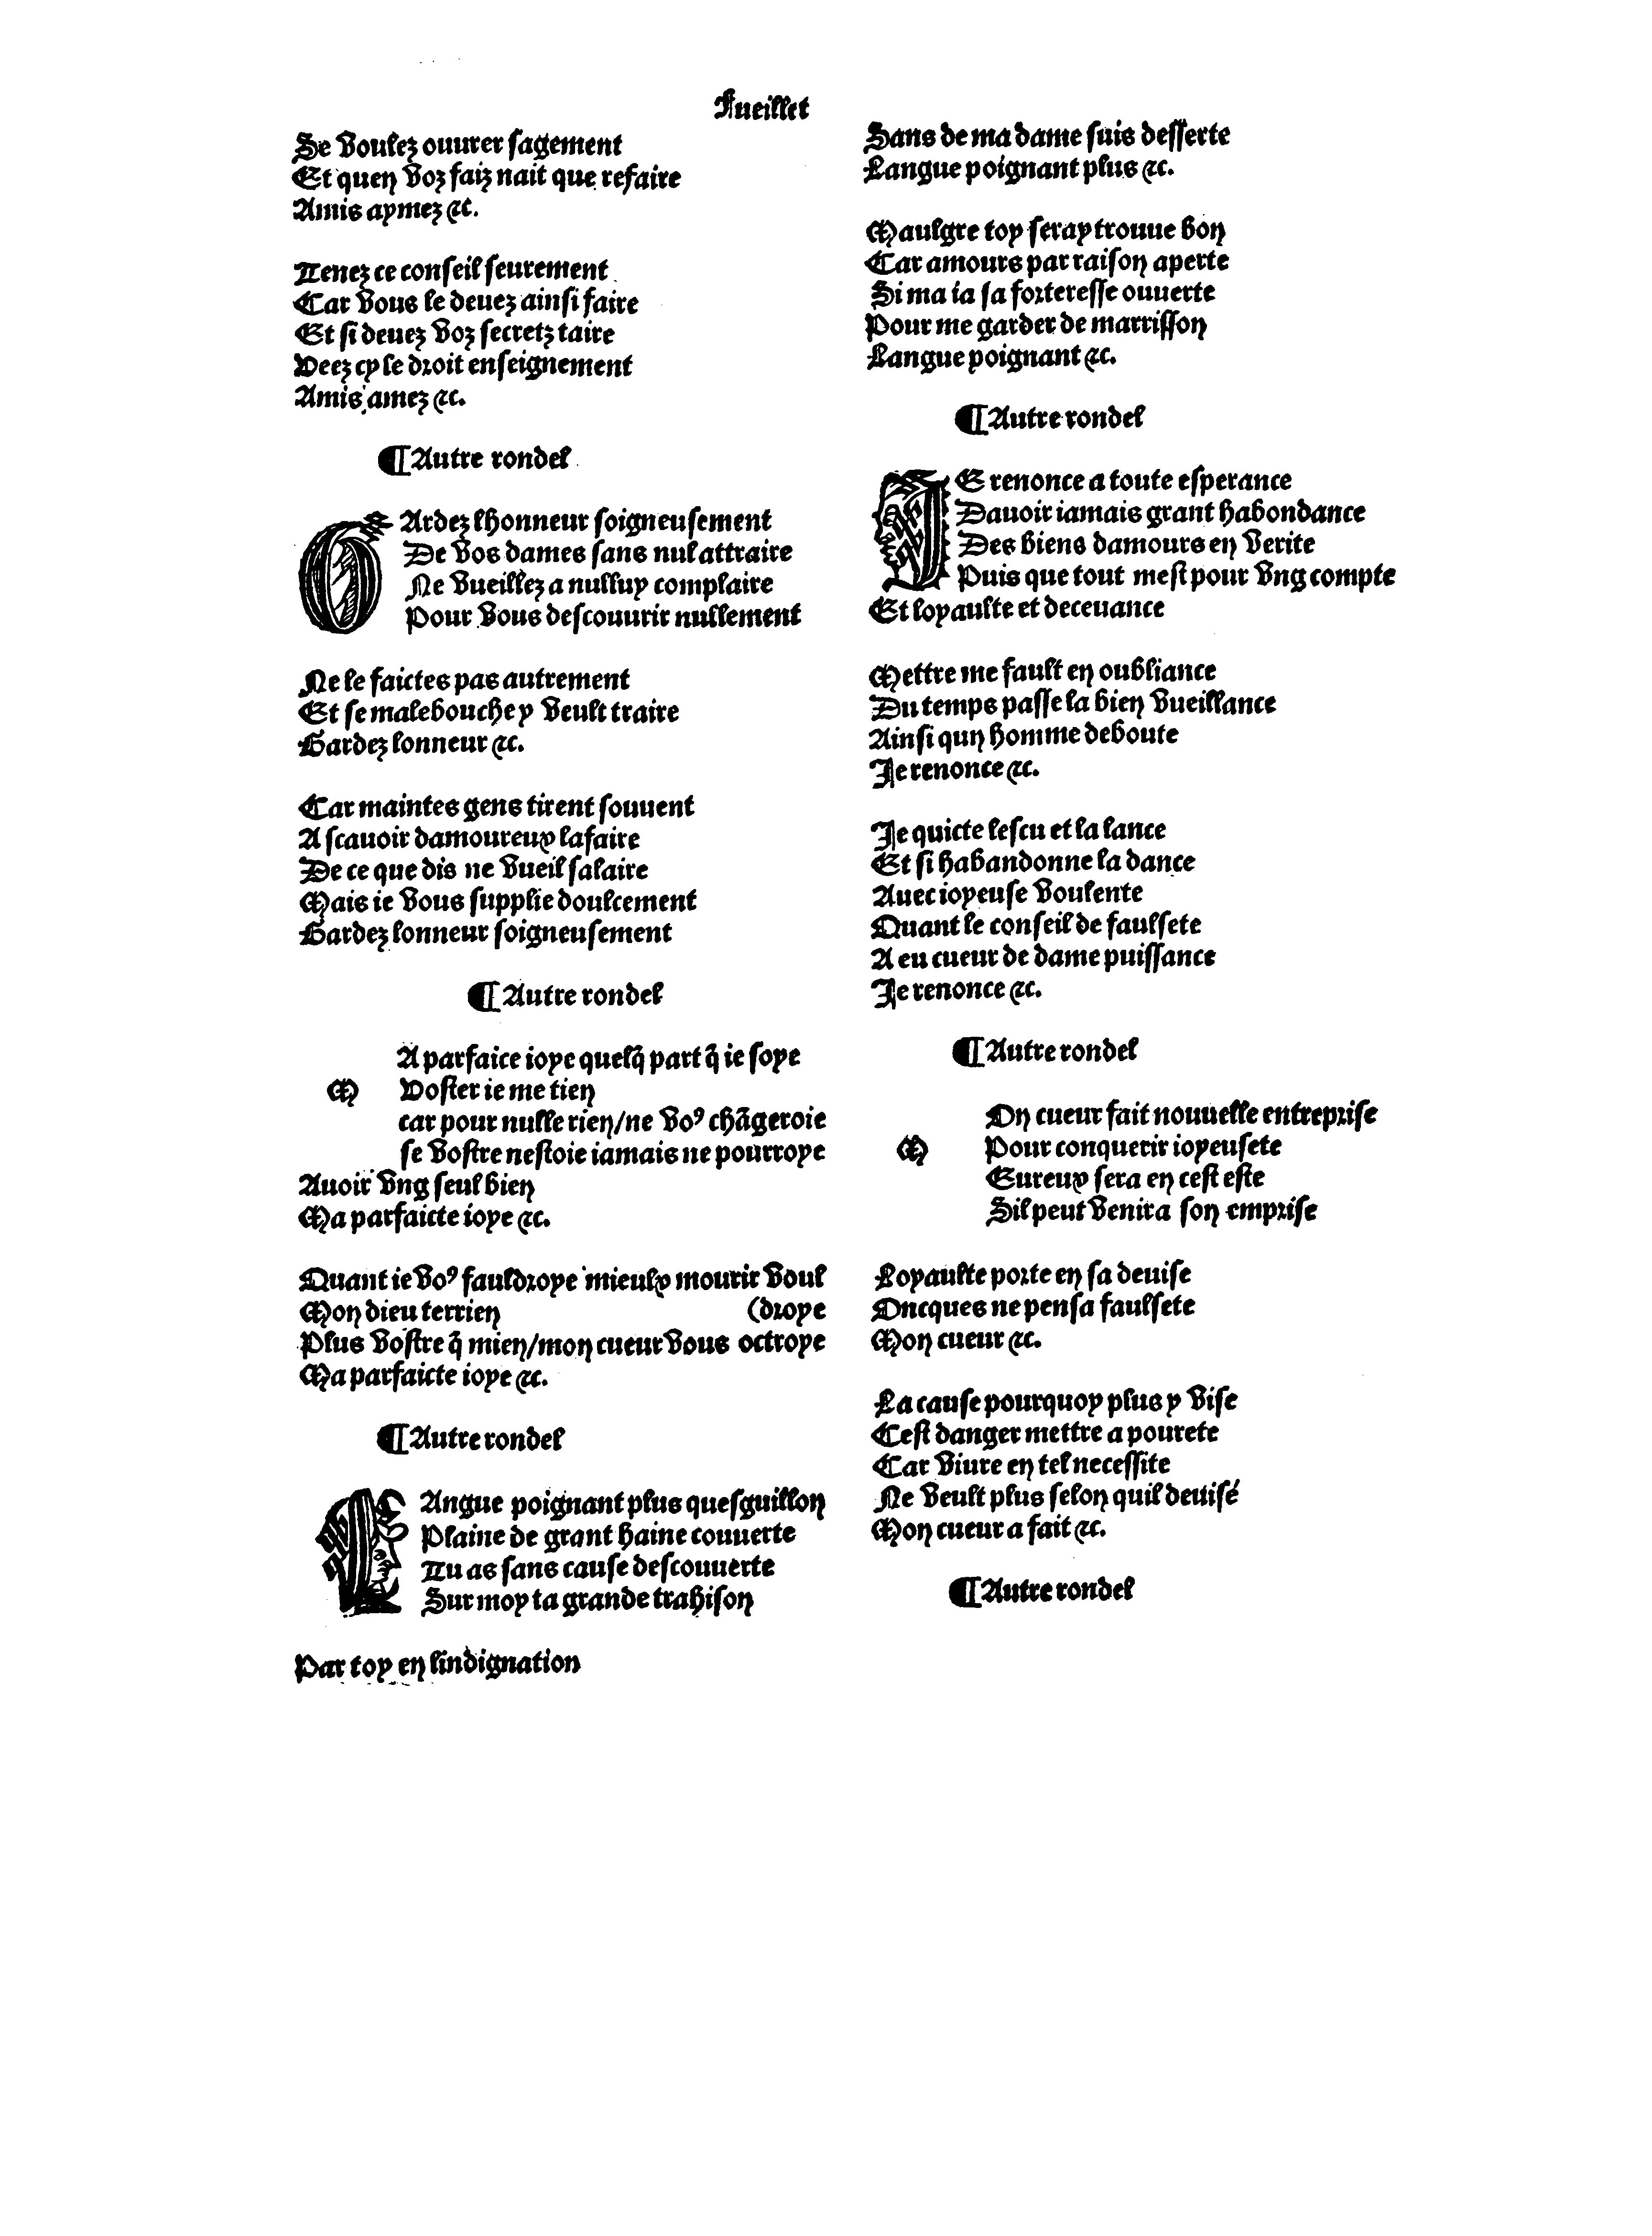 Fueillet
Se voulez ouurer sagement
Et quen voz faiz nait que refaire
Amis aymez &c.
Tenez ce conseil seurement
Car vous le deuez ainsi faire
Et si deuez voz secretz taire
Veez cy le droit enseignement
Amis amez &c.
¶ Autre rondel
GArdez lhonneur soigneusement
De vos dames sans nul attraire
Ne vueillez a nulluy complaire
Pour vous descouurir nullement
Ne le faictes pas autrement
Et se malebouche y veult traire
Gardez lonneur &c.
Car maintes gens tirent souuent
A scauoir damoureux lafaire
De ce que dis ne vueil salaire
Mais ie vous supplie doulcement
Gardez lonneur soigneusement
¶ Autre rondel
MA parfaice ioye quelq̃ part q̃ ie soye
Voster ie me tien
car pour nulle rien/ne voꝰ chãgeroie
se vostre nestoie iamais ne pourroye
Auoir vng seul bien
Ma parfaicte ioye &c.
Quant ie voꝰ fauldroye mieulx mourir voul
Mon dieu terrien (droye
Plus vostre q̃ mien/mon cueur vous octroye
Ma parfaicte ioye &c.
¶ Autre rondel
LAngue poignant plus quesguillon
Plaine de grant haine couuerte
Tu as sans cause descouuerte
Sur moy ta grande trahison
Par toy en lindignation
Sans de ma dame suis desserte
Langue poignant plus &c.
Maulgre toy seray trouue bon
Car amours par raison aperte
Si ma ia sa forteresse ouuerte
Pour me garder de marrisson
Langue poignant &c.
¶ Autre rondel
IE renonce a toute esperance
Dauoir iamais grant habondance
Des biens damours en verite
Puis que tout mest pour vng compte
Et loyaulte et deceuance
Mettre me fault en oubliance
Du temps passe la bien vueillance
Ainsi qun homme deboute
Ie renonce &c.
Ie quicte lescu et la lance
Et si habandonne la dance
Auec ioyeuse voulente
Quant le conseil de faulsete
A eu cueur de dame puissance
Ie renonce &c.
¶ Autre rondel
MOn cueur fait nouuelle entreprise
Pour conquerir ioyeusete
Eureux sera en cest este
Sil peut venir a son emprise
Loyaulte porte en sa deuise
Oncques ne pensa faulsete
Mon cueur &c.
La cause pourquoy plus y vise
Cest danger mettre a pourete
Car viure en tel necessite
Ne veult plus selon quil deuise
Mon cueur a fait &c.
¶ Autre rondel